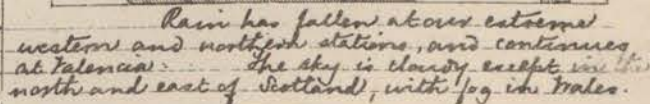 Rain has fallen at our extreme
western and northern stations, and continues
at Valencia. The sky is cloudy except in the
north and east of Scotland, with fog in Wales.